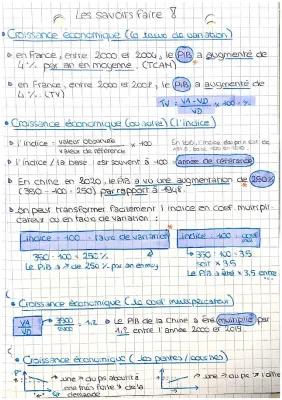 Les savoirs faire :
• Croissance économique (le taux de variation)
en France, entre 2000 et 2004, le PIB a augmenté de
4% par an en moyenne. (TCAM)
en France, entre 2000 et 2008, le PIB a augmenté de
4%. (TV)
TV = VA - VD × 100 = %
VD
• Croissance économique (ou autre) (l'indice)
l'indice = valeur observée × 100
valeur de référence
l'indice / la base est souvent à 100 année de référence
En chine en 2020, le PIB a vu une augmentation de 250%
(350 - 100 = 250) par rapport à
on peut transformer facilement l'indice en coef multipli-
cateur ou en taux de variation :
indice - 100 = taux de variation
indice ÷ 100 = coef
350 - 100 = 250%
350 ÷ 100 = 3,5
Le PIB a ↗ de 250% par an
Le PIB a été × 3,5 entre
• Croissance économique (le coef multiplicateur)
VA
VD
= 1,2 Le PIB de la Chine a été multiplié par
1,2 entre l'année 2000 et 2019
• Croissance économique (les pentes / courbes)
une ↗ du px aboutit à
une très forte ↘ de la
demande
une ↗ du px ↗ l'offre